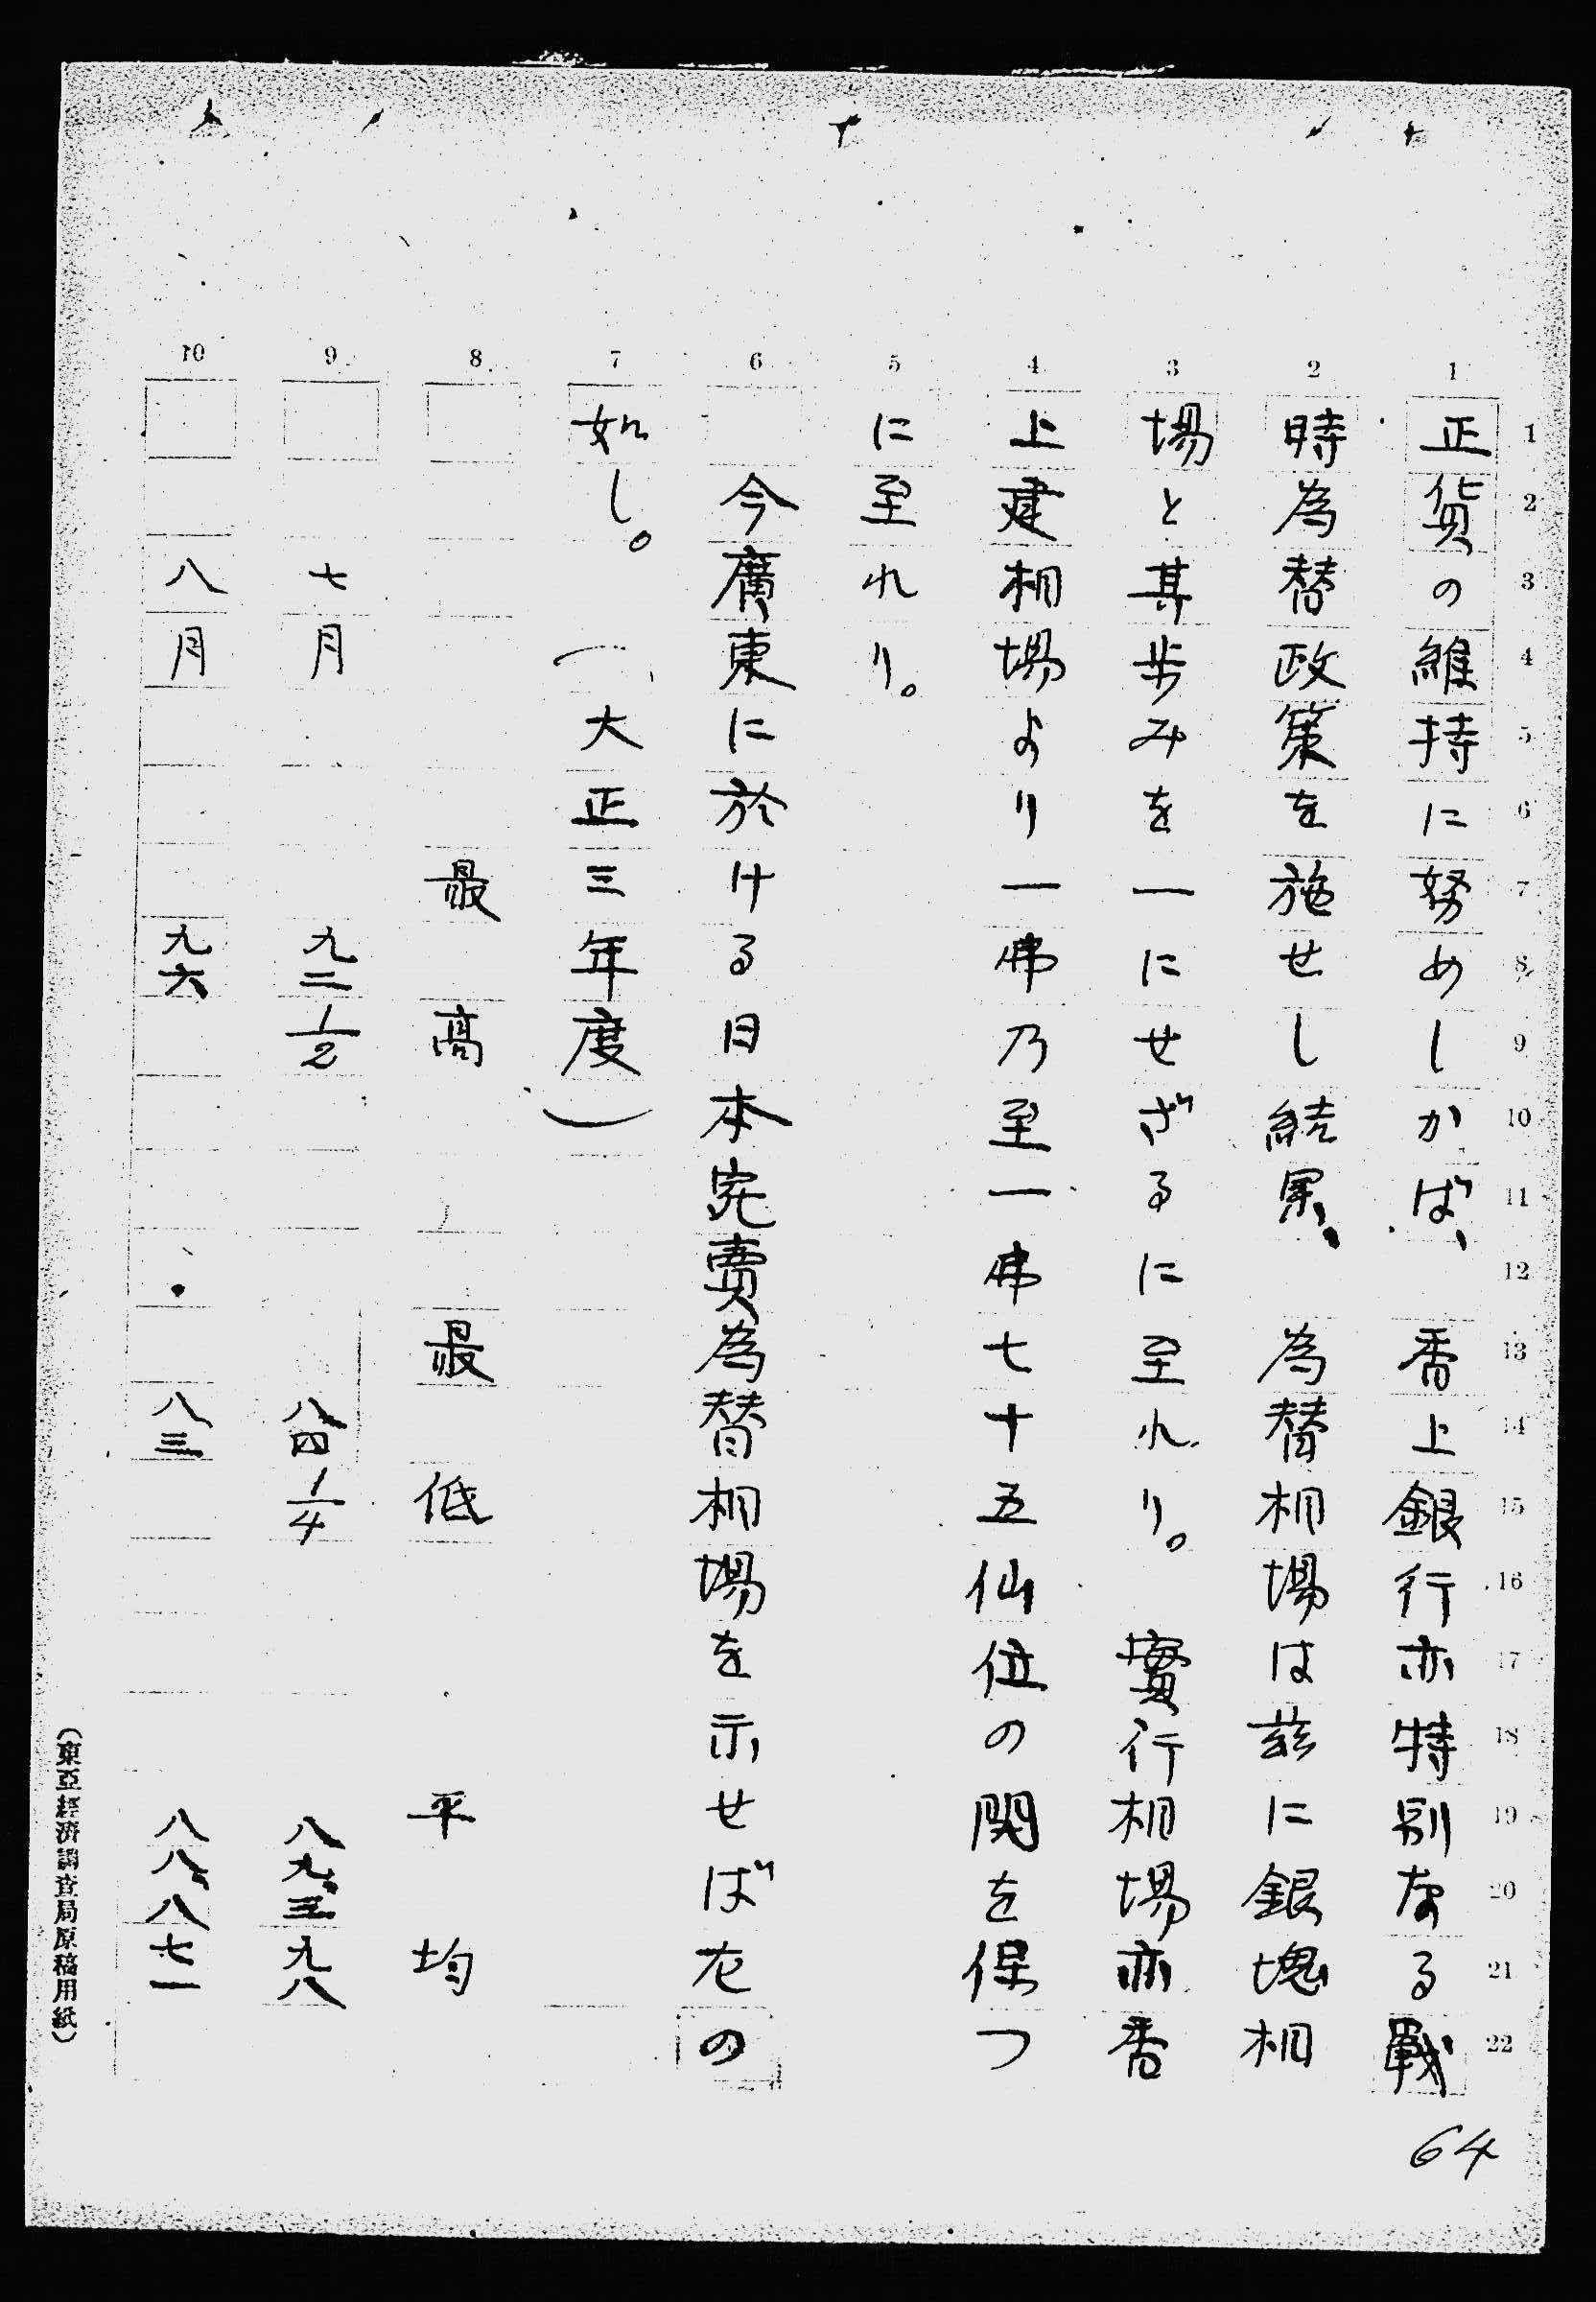 正貨の維持に努めしかば、香上銀行亦特別なる戰
時為替政策を施せし結果、為替相場は茲に銀塊相
場と其歩みを一にせざるに至れり。實行相場亦香
上建相場より一弗乃至一弗七十五仙位の関を保つ
に至れり。
今廣東に於ける日本宛賣為替相場を示せば左の
如し。(大正三年度)
最高 最低 平均
七月 九二1/2 八四1/4 八九、三九八
八月 九六 八三 八八、八七一
(東亞經濟調査局原稿用紙)
1 2 3 4 5 6 7 8 9 10
1 2 3 4 5 6 7 8 9 10 11 12 13 14 15 16 17 18 19 20 21 22
64